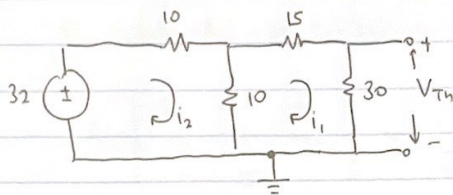 10 15
32 ± i₂ 10 i₁ 30 + V_Th -